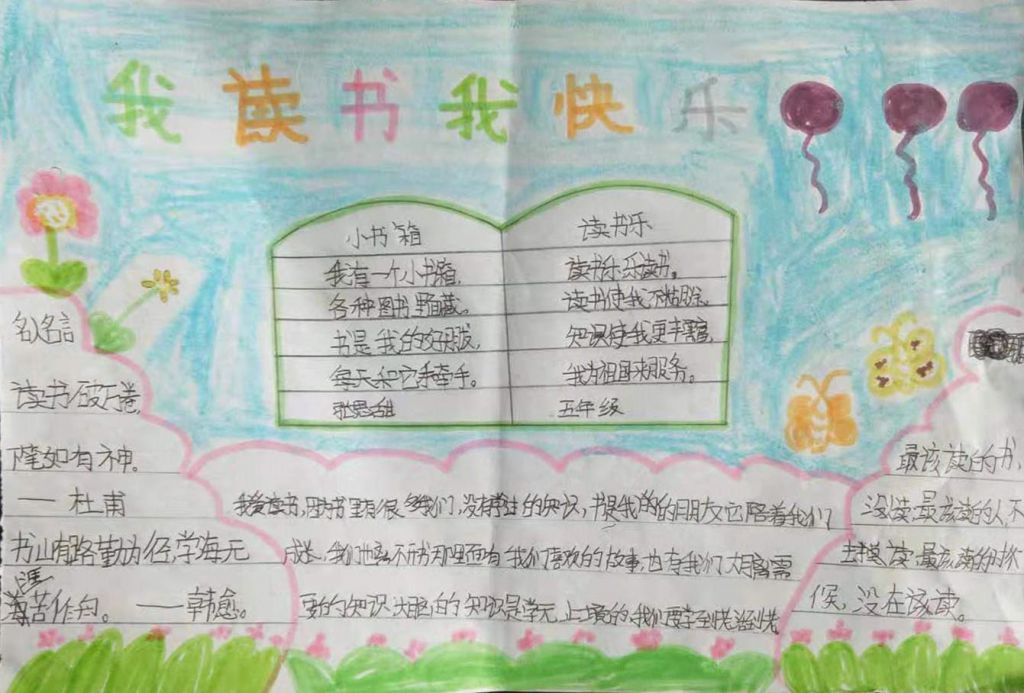 我读书我快乐
小书箱
我有一个小书箱,
各种图书里面藏。
书是我的好朋友,
每天和它手牵手。
读书乐
读书乐,乐读书。
读书使我不糊涂,
知识使我更丰富,
我为祖国来服务。
五年级
名人名言
读书破万卷,
下笔如有神。
—— 杜甫
书山有路勤为径,学海无
涯苦作舟。 ——韩愈。
我爱读书,因为书里有很多我们没有学过的知识,书是我的朋友它陪着我们
成长,我们
里还有我们喜欢的故事,也有我们大脑需
要的知识,大脑的知识是学无止境的,我们要
最该读的书,
没读,最该读的人不
去读,最该读的时
候,没在读。